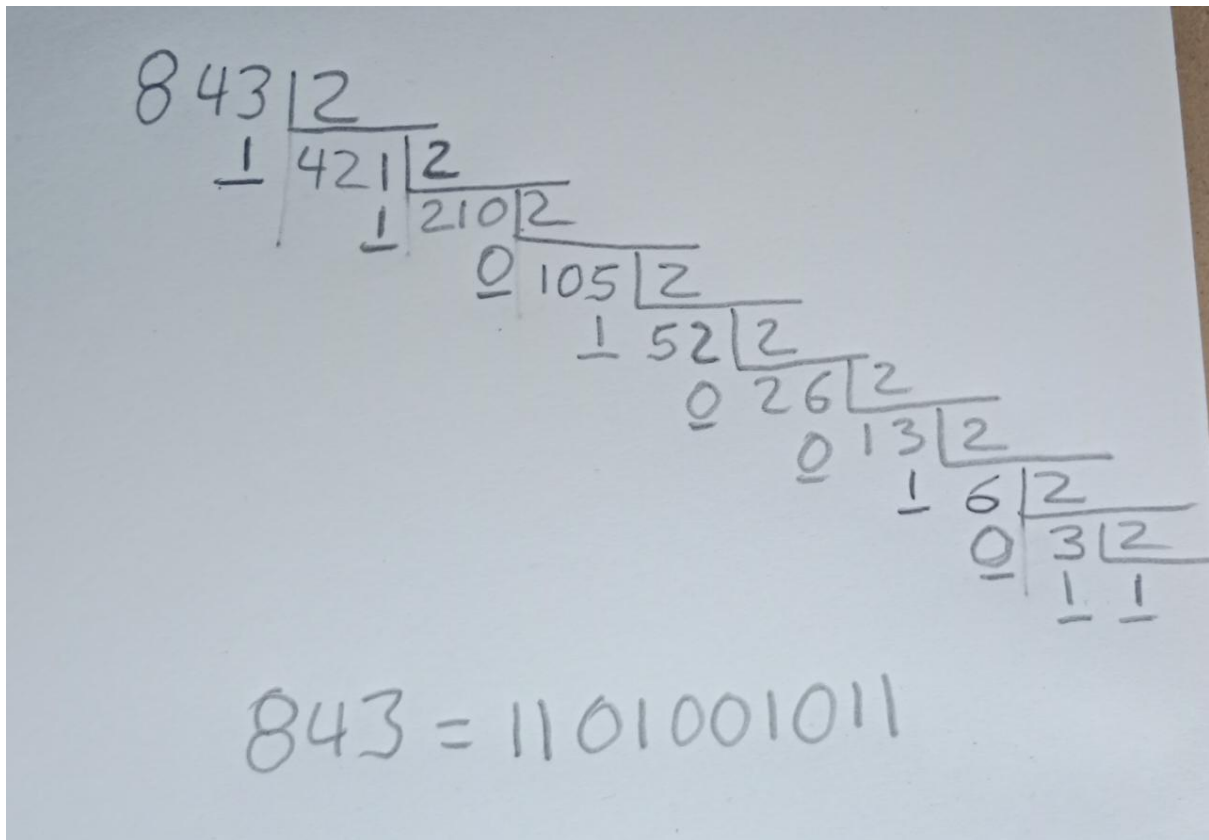 843 2
1 421 2
1 210 2
0 105 2
1 52 2
0 26 2
0 13 2
1 6 2
0 3 2
1 1
843 = 1101001011